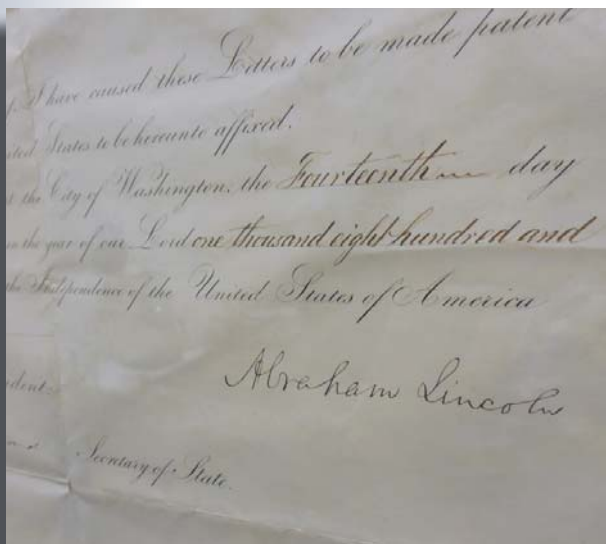 I have caused these Letters to be made patent
States to be hereunto affixed.
the City of Washington, the Fourteenth day
the year of our Lord one thousand eight hundred and
the Independence of the United States of America
Abraham Lincoln
Secretary of State.